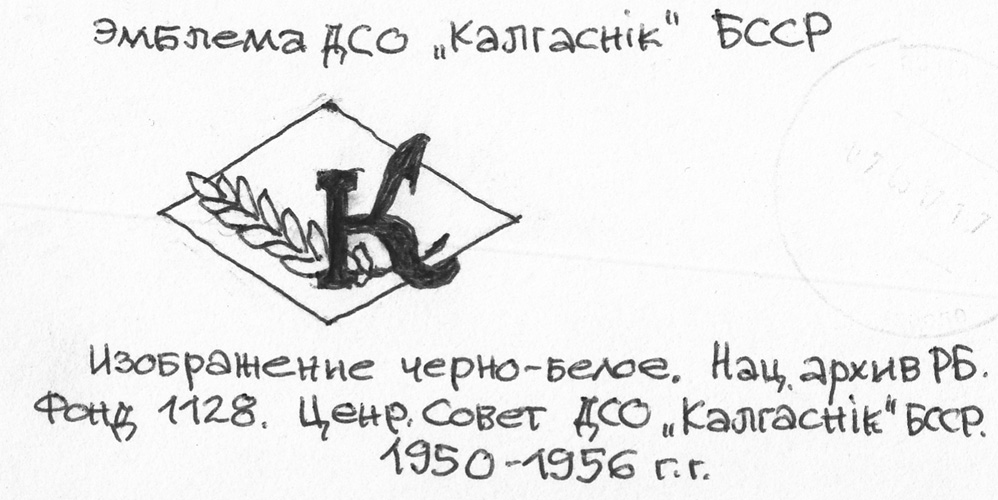 Эмблема ДСО „Калгаснік“ БССР
К
Изображение черно-белое. Нац. архив РБ.
Фонд 1128. Ценр. Совет ДСО „Калгаснік“ БССР.
1950-1956 г.г.